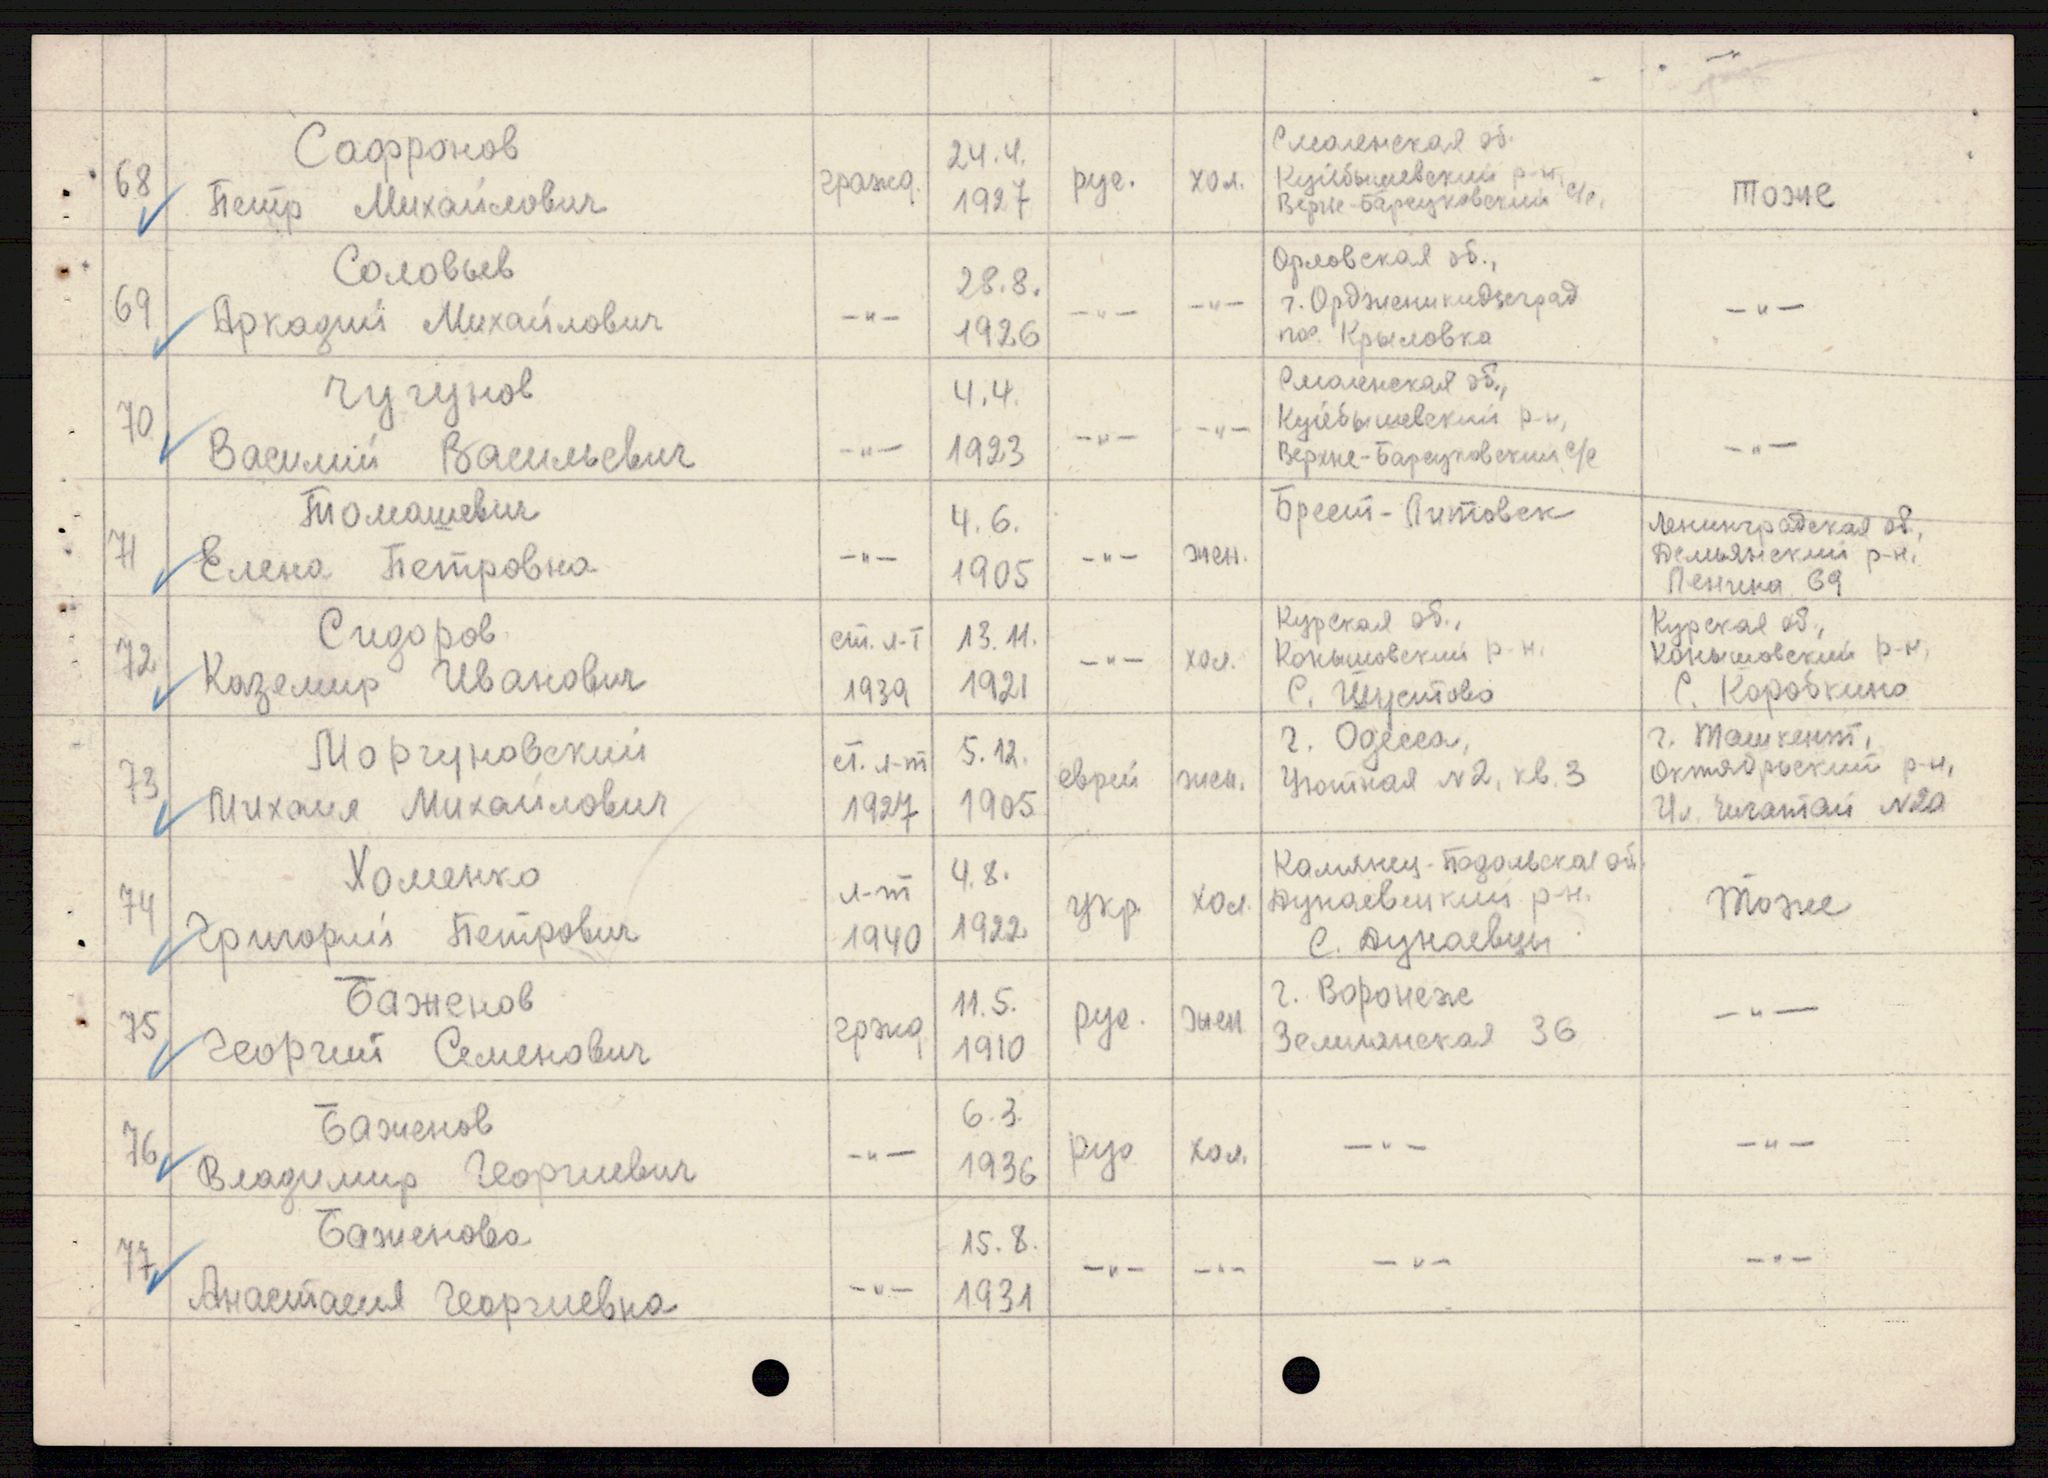 68 Сафронов Петр Михайлович гражд. 24.4. 1927 рус. хол. Смоленская об. Куйбышевский р-н, Верхне-Барсуковский с/с. тоже
69 Соловьев Аркадий Михайлович -"- 28.8. 1926 -"- -"- Орловская об., г. Орджоникидзеград пос. Крыловка -"-
70 Чугунов Василий Васильевич -"- 4.4. 1923 -"- -"- Смоленская об., Куйбышевский р-н, Верхне-Барсуковский с/с -"-
71 Томашевич Елена Петровна -"- 4.6. 1905 -"- жен. Брест-Литовск Ленинградская об., Демьянский р-н. Ленина 69
72 Сидоров Каземир Иванович ст. л-т 1939 13.11. 1921 -"- хол. Курская об., Конышовский р-н. С. Шустово Курская об., Конышовский р-н, С. Коробкино
73 Моргуновский Михаил Михайлович ст. л-т 1927 5.12. 1905 еврей жен. г. Одесса, Уютная №2, кв. 3 г. Ташкент, Октябрьский р-н, Ул. Чегатай №20
74 Хоменко Григорий Петрович л-т 1940 4.8. 1922 укр. хол. Камянец-Подольская об. Дунаевецкий р-н. С. Дунаевцы Тоже
75 Баженов Георгий Семенович гржд 11.5. 1910 рус. жен г. Воронеж Землянская 36 -"-
76 Баженов Владимир Георгиевич -"- 6.3. 1936 рус хол. -"- -"-
77 Баженова Анастасия Георгиевна -"- 15.8. 1931 -"- -"- -"- -"-